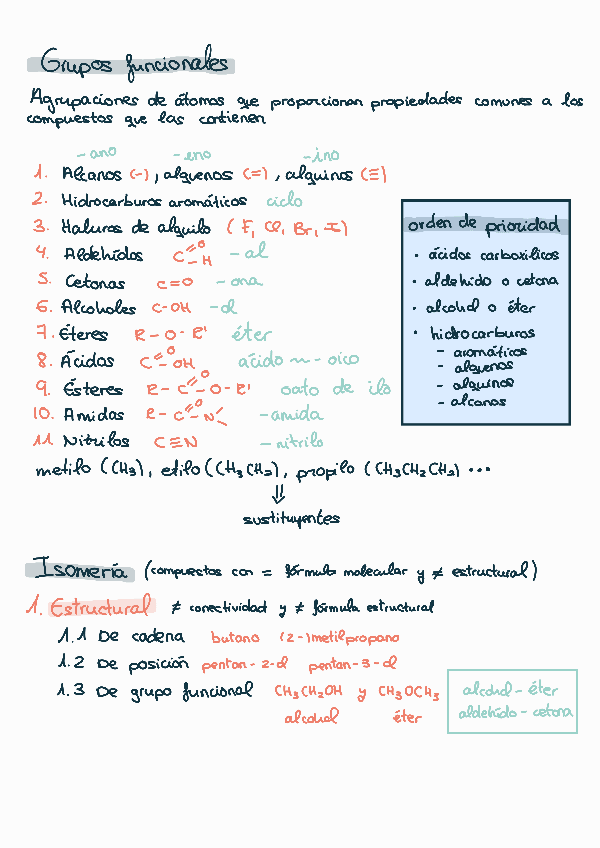 Grupos funcionales
Agrupaciones de átomos que proporcionan propiedades comunes a los
compuestos que las contienen
-ano -eno -ino
1. Alcanos (-), alquenos (=), alquinos (≡)
2. Hidrocarburos aromáticos ciclo
3. Haluros de alquilo (F, Cl, Br, I)
4. Aldehídos C=O-H -al
5. Cetonas C=O -ona
6. Alcoholes C-OH -ol
7. Éteres R-O-R' éter
8. Ácidos C=O-OH ácido ~-oico
9. Ésteres R-C=O-O-R' oato de ilo
10. Amidas R-C=O-N< -amida
11. Nitrilos C≡N -nitrilo
orden de prioridad
· ácidos carboxílicos
· aldehído o cetona
· alcohol o éter
· hidrocarburos
- aromáticos
- alquenos
- alquinos
- alcanos
metilo (CH3), etilo (CH3CH2), propilo (CH3CH2CH2) ...
⇓
sustituyentes
Isomería (compuestos con = fórmula molecular y ≠ estructural)
1. Estructural ≠ conectividad y ≠ fórmula estructural
1.1 De cadena butano (2-)metilpropano
1.2 De posición pentan-2-ol pentan-3-ol
1.3 De grupo funcional CH3CH2OH y CH3OCH3
alcohol éter
alcohol-éter
aldehído-cetona